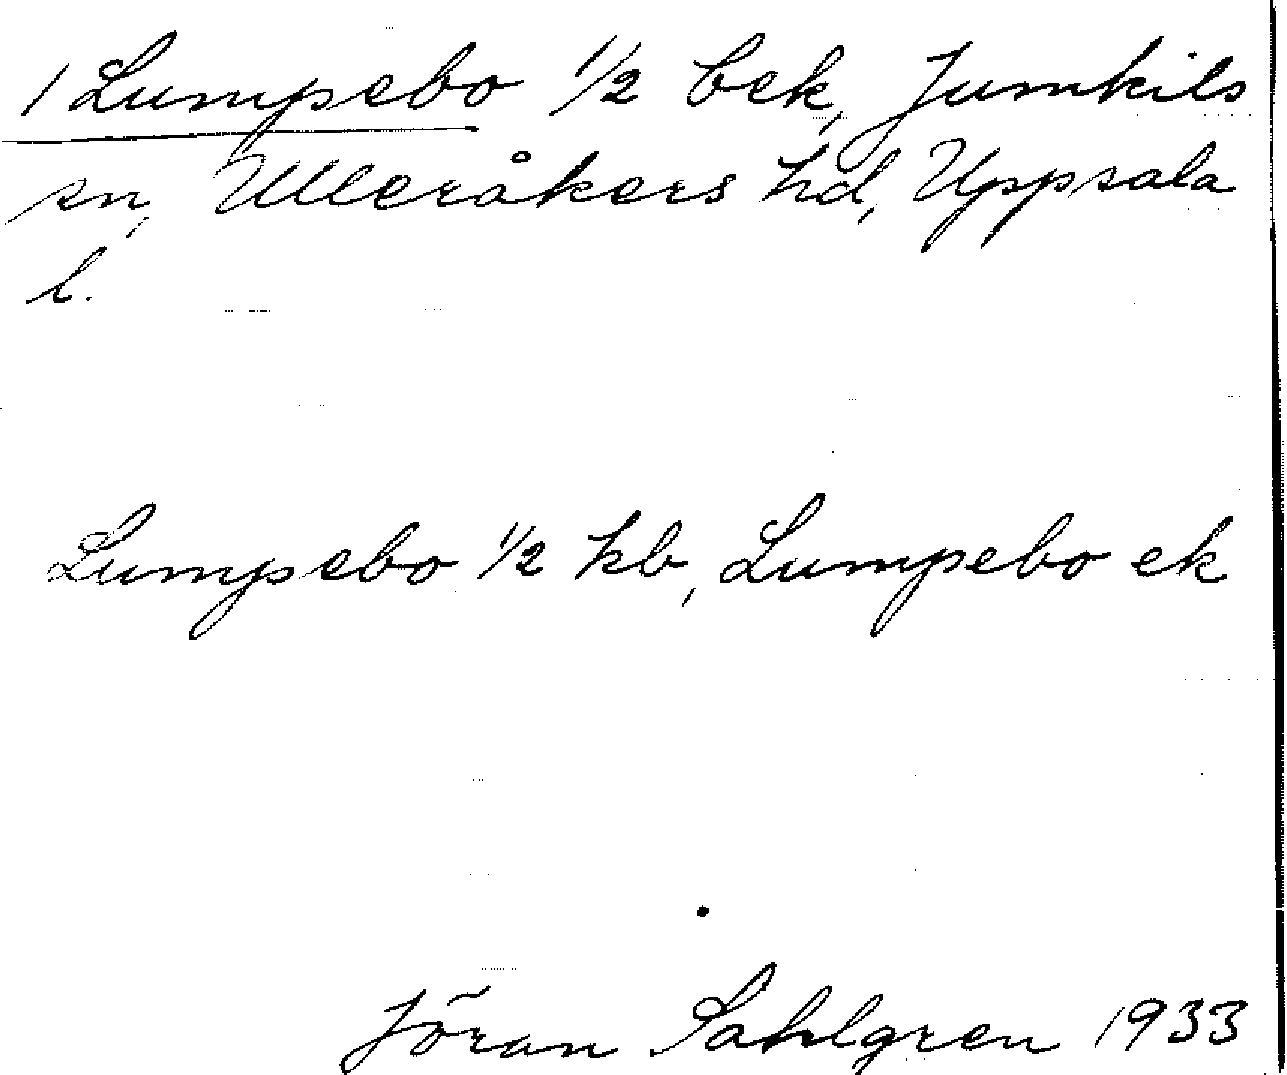 1 Lumpebo 1/2 bek, Jumkils
sn, Ulleråkers hd, Uppsala
l.
Lumpebo 1/2 kb, Lumpebo ek
Jöran Sahlgren 1933